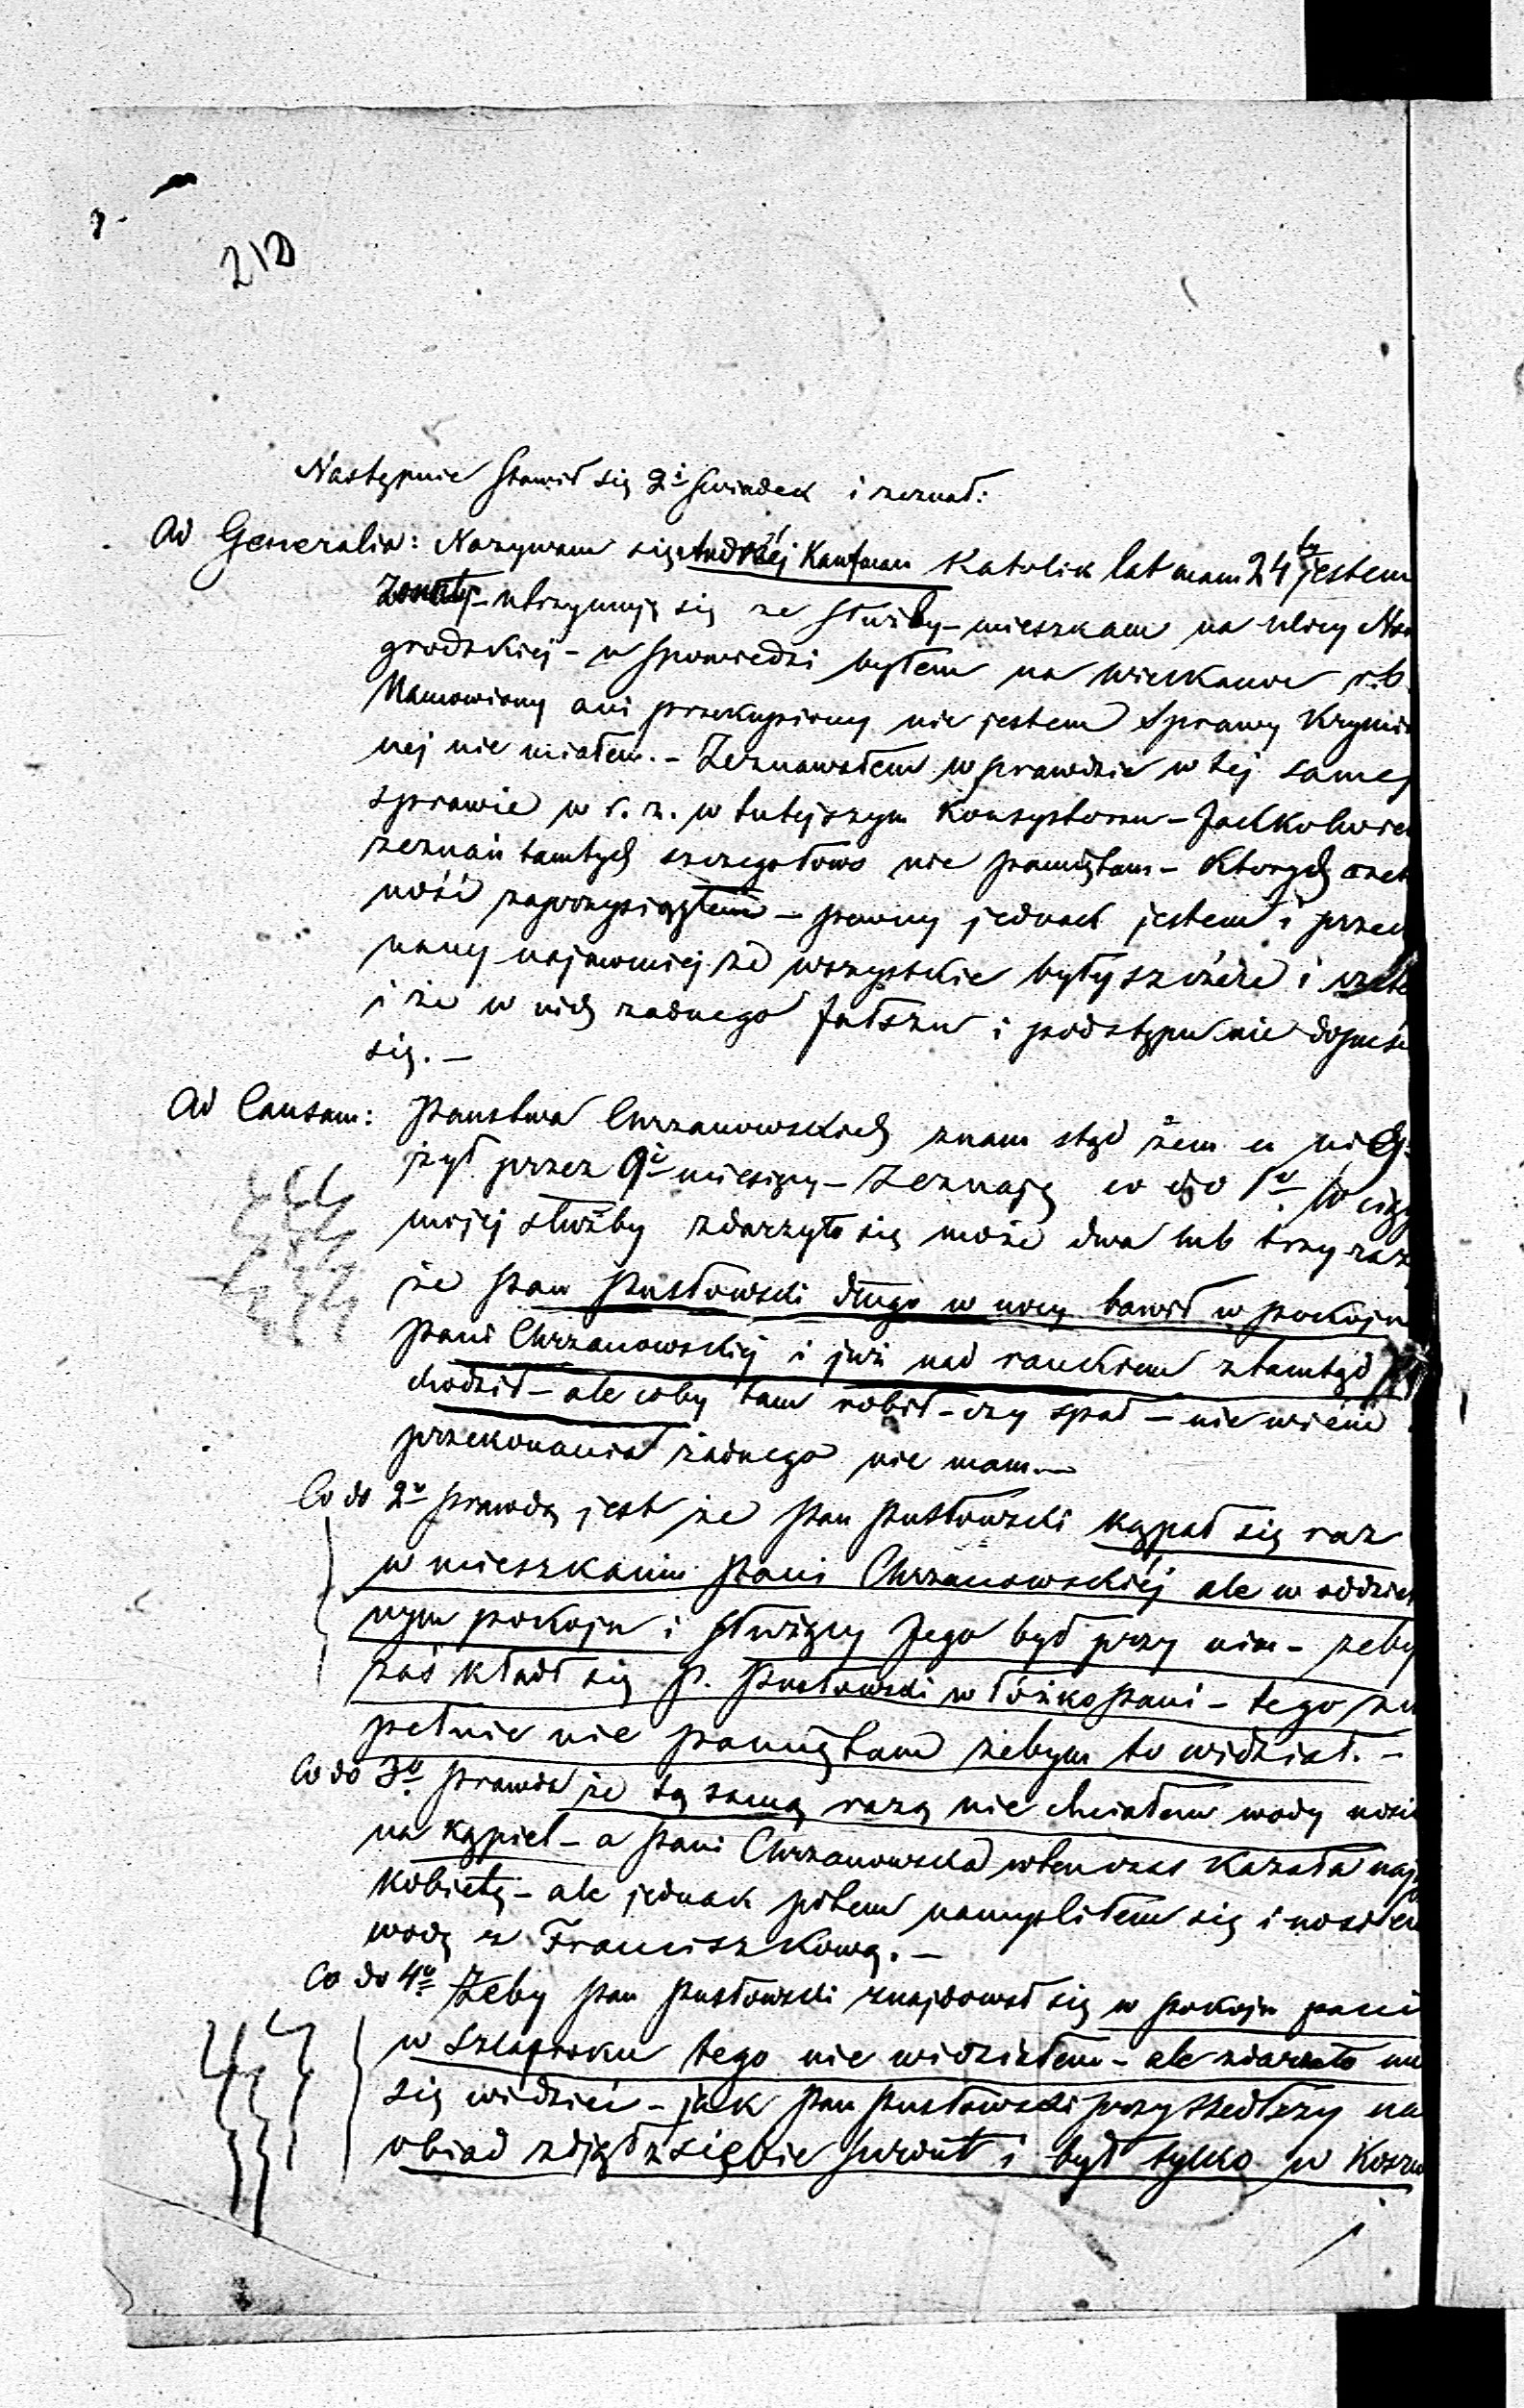 210
Następnie stawił się 2i świadek i zeznał:
Ad Generalia: Nazywam się Andrzéj Kaufman Katolik lat mam 24ty jestem
Zonaty - utrzymuję się ze służby - mieszkam na ulicy
grodzkiej - u spowiedzi byłem na Wielkanoc r. b.
Namowiony ani przekupiony nie jestem Sprawy Krymi
nej nie miałem. - Zeznawałem wprawdzie w tej samej
sprawie w r. z. w tutejszym Konsystorzu - Jackolwiek
zeznań tamtych szczegołowo nie pamiętam - Ktorych
ność zaprzysiągłem - pewny jednak jestem i przeko
nany najmocniej że wszystkie były szczére i rzete
i że w nich zadnego fałszu i podstępu nie dopuści
się. -
Ad Causam: Państwa Chrzanowskich znam ztąd żem u nich
żył przez 9ć miesięcy - Zeznaję co do 1o W cią
mojej służby zdarzyło się może dwa lub trzy razy
że Pan Pusłowski długo w nocy bawił w pokoju
Pani Chrzanowskiéj i już nad rankiem ztamtąd
chodził - ale coby tam robił - czy spał - nie wiém
przekonania żadnego nie mam. -
Co do 2o prawdą jest że Pan Pusłowski kąpał się raz
w mieszkaniu Pani Chrzanowskiéj ale w oddziel
nym pokoju i służący Jego był przy nim - żeby
zaś kładł się P. Pusłowski w łóżko Pani - tego zu
pełnie nie pamiętam żebym to widział. -
Co do 3o Prawda że tą samą razą nie chciałem wody nosić
na kąpiel - a Pani Chrzanowska wtenczas kazała nają
kobietę - ale jednak potem namyśliłem się i nosiłem
wodę z Franciszkową. -
Co do 4o Zeby Pan Pusłowski znajdował się w pokoju pani
w Szlafroku tego nie widziałem - ale zdarzało mi
się widzieć - jak Pan Pusłowski przyszedłszy na
obiad zdjął z siebie surdut i był tylko w Koszu
i